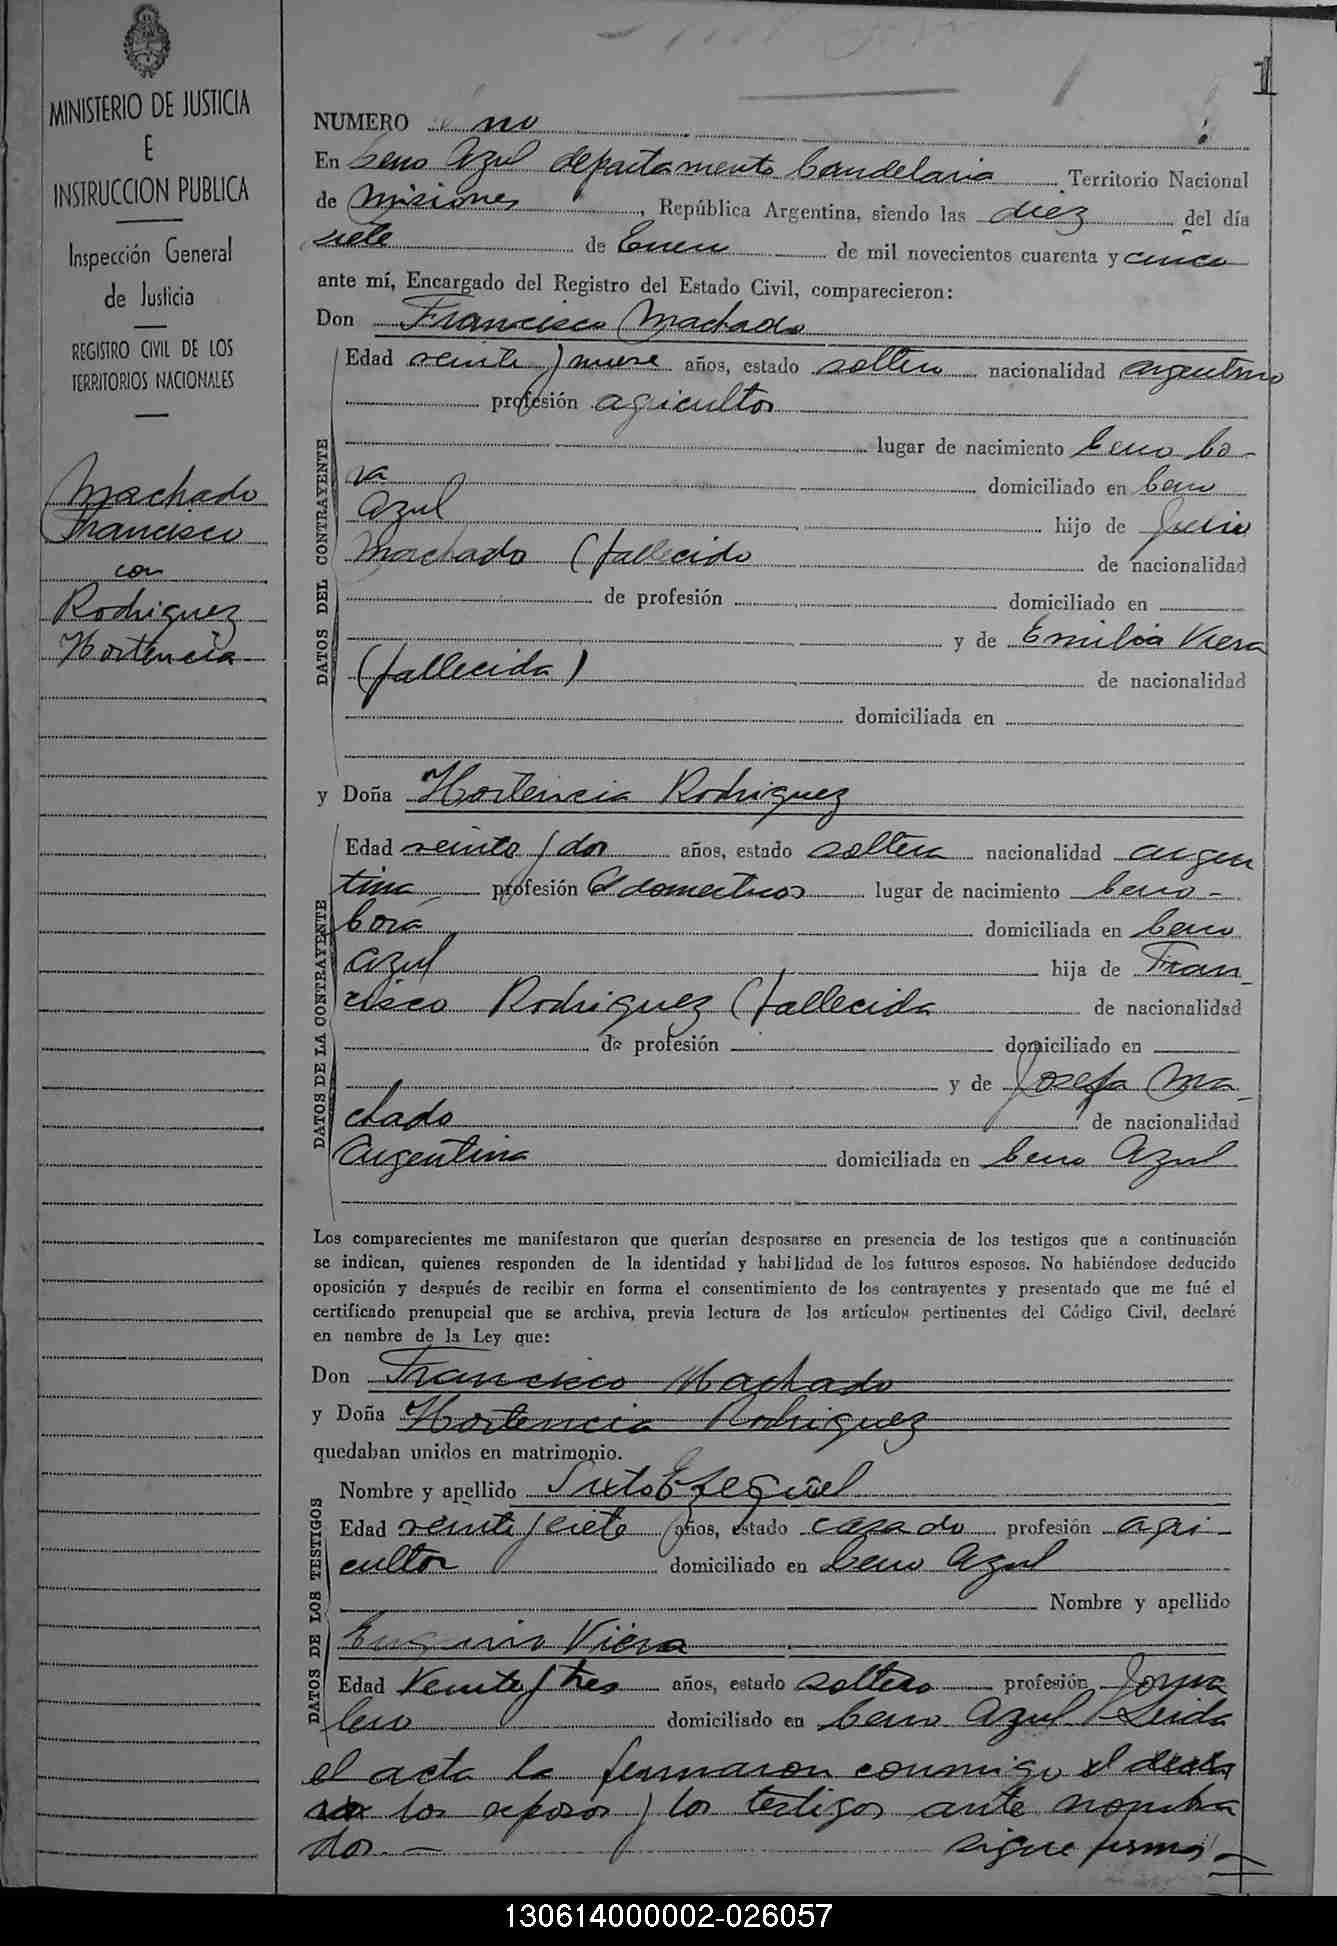 1
MINISTERIO DE JUSTICIA
E
INSTRUCCION PUBLICA
Inspección General
de Justicia
REGISTRO CIVIL DE LOS
TERRITORIOS NACIONALES
Machado
Francisco
con
Rodriguez
Hortencia
NUMERO uno
En Cerro Azul departamento Candelaria Territorio Nacional
de Misiones, República Argentina, siendo las diez del día
siete de Enero de mil novecientos cuarenta y cinco
ante mí, Encargado del Registro del Estado Civil, comparecieron:
Don Francisco Machado
DATOS DEL CONTRAYENTE
Edad veinte y nueve años, estado soltero nacionalidad argentino
profesión agricultor
lugar de nacimiento Cerro Co-
rá domiciliado en Cerro
Azul hijo de
Machado (fallecido de nacionalidad
de profesión domiciliado en
y de Emilia Viera
(fallecida) de nacionalidad
domiciliada en
y Doña Hortencia Rodriguez
DATOS DE LA CONTRAYENTE
Edad veinte y dos años, estado soltera nacionalidad argen
tina profesión Q domesticos lugar de nacimiento Cerro-
Corá domiciliada en Cerro
Azul hija de Fran-
cisco Rodriguez (fallecida de nacionalidad
de profesión domiciliado en
y de Josefa Ma-
chado de nacionalidad
Argentina domiciliada en Cerro Azul
Los comparecientes me manifestaron que querían desposarse en presencia de los testigos que a continuación
se indican, quienes responden de la identidad y habilidad de los futuros esposos. No habiéndose deducido
oposición y después de recibir en forma el consentimiento de los contrayentes y presentado que me fué el
certificado prenupcial que se archiva, previa lectura de los artículos pertinentes del Código Civil, declaré
en nombre de la Ley que:
Don Francisco Machado
y Doña Hortencia Rodriguez
quedaban unidos en matrimonio.
DATOS DE LOS TESTIGOS
Nombre y apellido Sixto Ezequiel
Edad veinte y siete años, estado casado profesión agri-
cultor domiciliado en Cerro Azul
Nombre y apellido
Eugenio Viera
Edad Veinte y tres años, estado soltero profesión Jorna
lero domiciliado en Cerro Azul Leida
el acta la firmaron conmigo el
los esposos y los testigos ante nombra
dos.— sigue firmas—
130614000002-026057